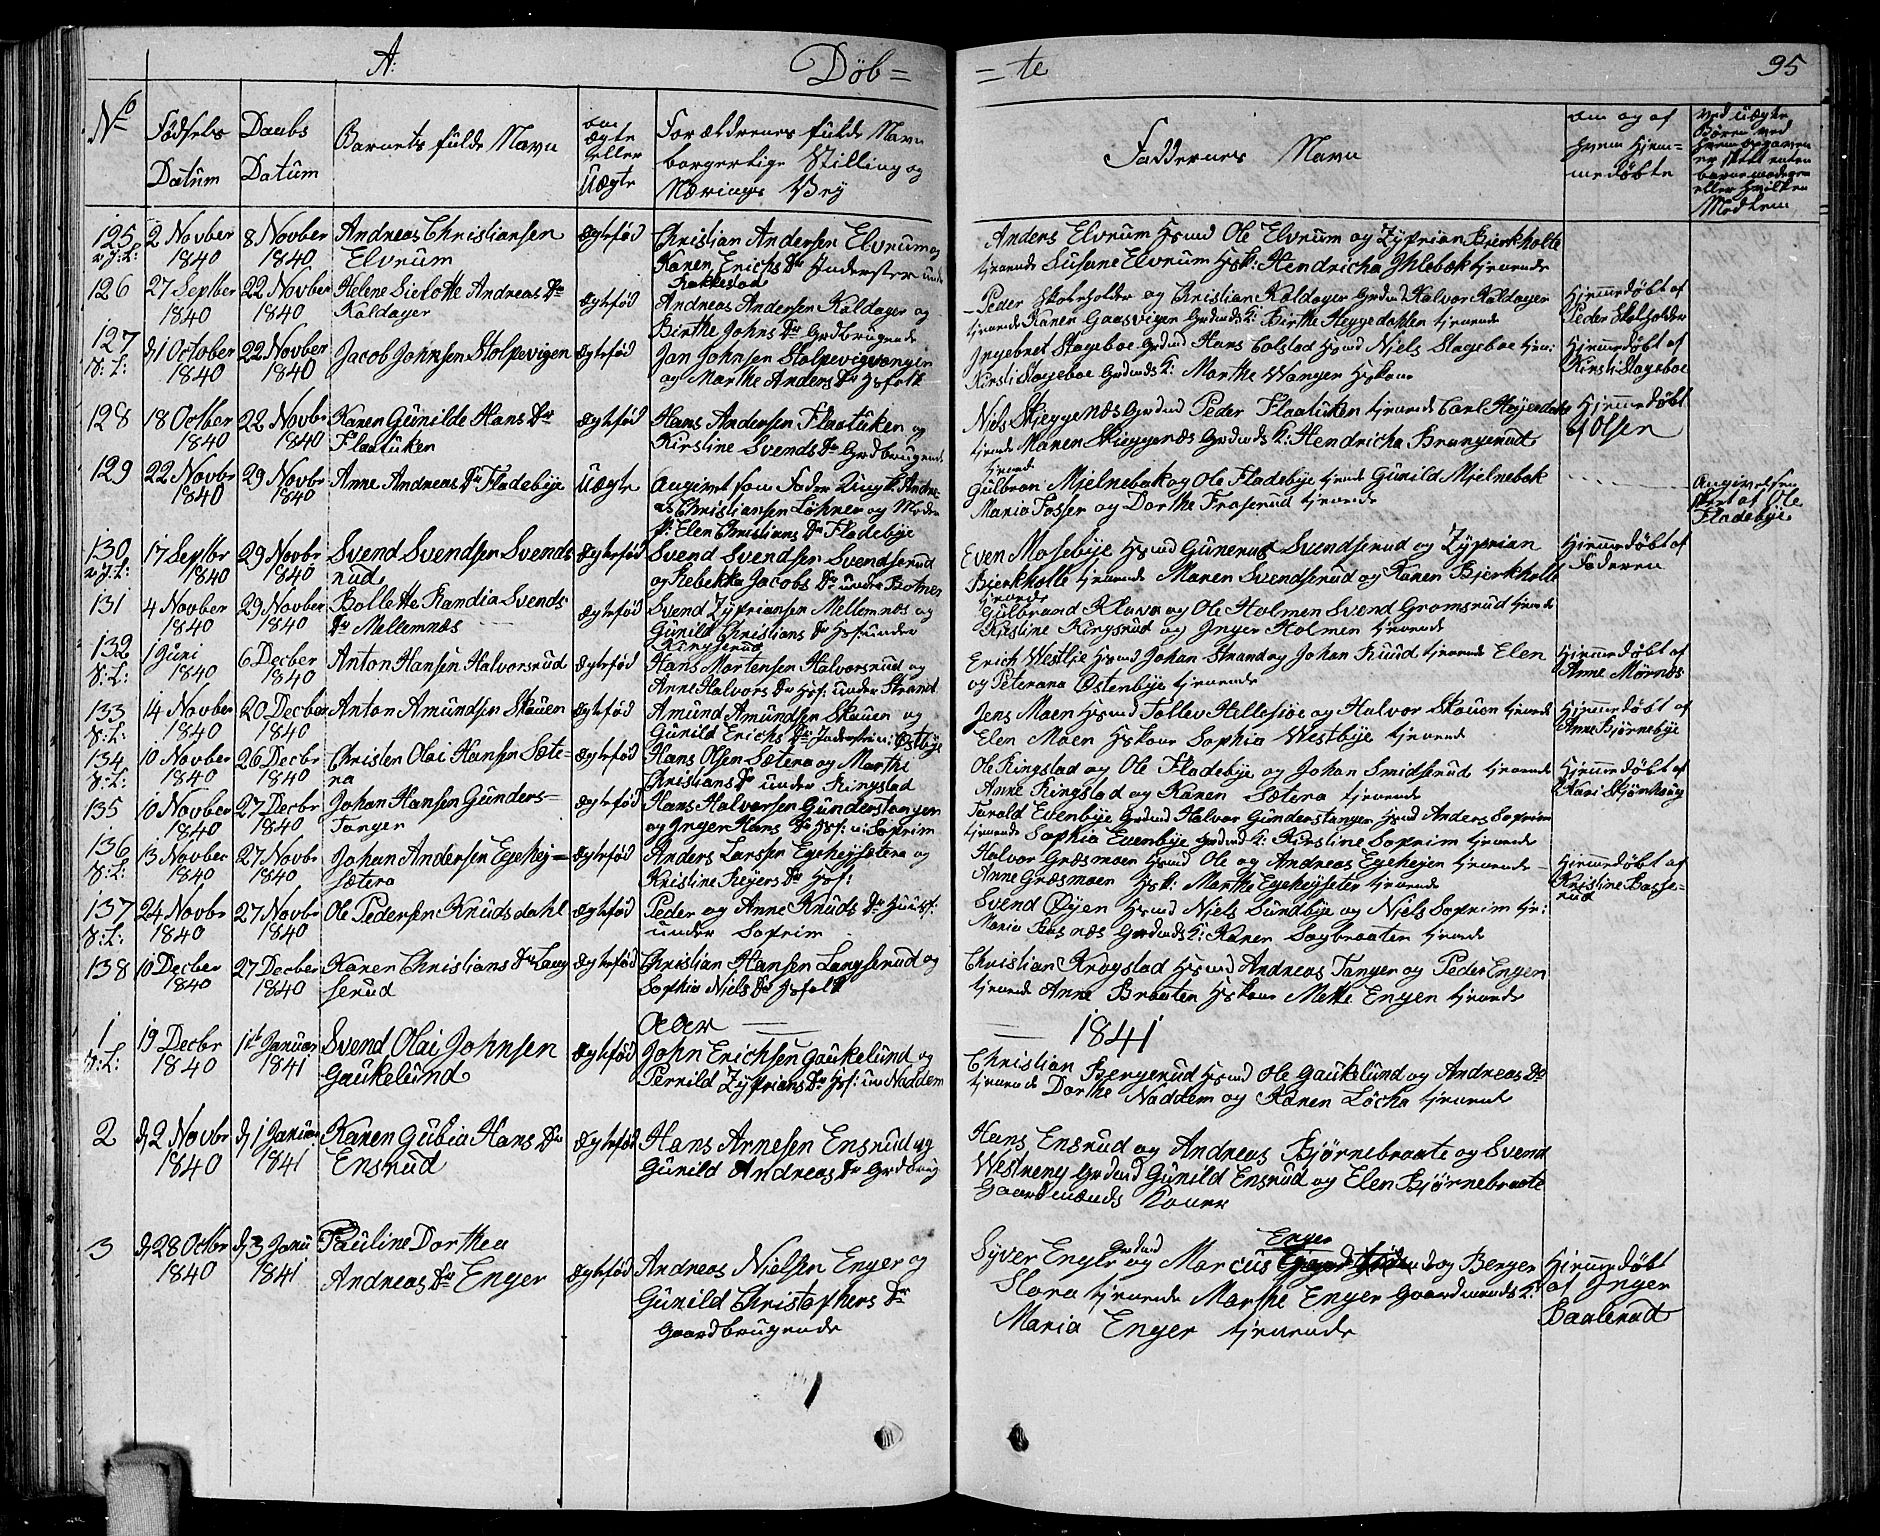 A: Døb= =te 95
No
Fødsels Datum
Daabs Datum
Barnets fulde Navn
om ægte eller Uægte
Forældrenes fulde Navn borgerlige Stilling og Nærings Vej
Faddernes Navn
om og af hvem hjemmedøbte
125 2 Novber 1840 8 Novber 1840 Andreas Christiansen Elvrum ægtefød Christian Andersen Elvrum og Karen Erichs Dr Inderster under Rakkestad
Anders Elvrum Hsmd Ole Elvrum og Zyprian Bjerkholte
tjenende Susane Elvrum Hsk: Hendricha Ihlebæk tjenende
126 27 Septber 1840 22 Novber 1840 Helene Lielotte Andreas Dr Kaldager ægtefød Andreas Andersen Kaldager og Birthe Johns Dr Grdbrugende
Peder Skoleholder og Christian Kaldager Grdmd Halvor Kaldager
tjenende Karen Gaasvigen Grdmds K: Birthe Heggedahlen tjenende
Hjemmedøbt af Peder Skolholder
127 d 1 October 1840 22 Novber 1840 Jacob Johnsen Stolpevigen ægtefød Jan Johnsen Stolpevigvangen og Marthe Anders Dr Hsfolk
Ingebret Slageboe Grdmd Hans Colstad Hsmd Niels Slageboe tjen:
Kirsti Slageboe Grdmds K: Marthe Wangen Hskone
Hjemmedøbt af Kirsti Slageboe
128 18 Octber 1840 22 Novbr 1840 Karen Gunilde Hans Dr Flaatuken ægtefød Hans Andersen Flaatuken og Kirstine Svends Dr Grdbrugende
Niels Skjeggenæs Grdmd Peder Flaatuken tjenende Carl Heyendahl
tjende Maren Skjeggenæs Grdmds K: Hendricha Brangerud tjende
Hjemmedøbt af Olsen
129 22 Novbr 1840 29 Novbr 1840 Anne Andreas Dr Fladebye Uægte Angivet som Fader Ungk: Andreas Christiansen Løhner og Moder P: Elen Christians Dr Fladebye
Gulbran Mjelnebak og Ole Fladebye tjende Gunild Mjelnebak
Maria Fosser og Dorthe Fraserud tjenende
Angivelsen skeet af Ole Fladebye
130 17 Septbr 1840 29 Novbr 1840 Svend Svendsen Svendsrud ægtefød Svend Svendsen Svendserud og Rebekka Jacobs Dr under Botner
Even Mosebye Hsmd Gunerus Svendserud og Zyprian
Bjerkholte tjenende Maren Svendserud og Karen Bjerkholte tjenende
Hjemmedøbt af Faderen
131 4 Novber 1840 29 Novber 1840 Bollette Randia Svends Dr Mellemnæs ægtefød Svend Zypriansen Mellemnæs og Gunild Christians Dr Hsf under Ringserud
Gulbrand Klava og Ole Holmen Svend Gromsrud tjende
Kirstine Ringsrud og Inger Holmen tjenende
132 1 Juni 1840 6 Decber 1840 Anton Hansen Halvorsrud ægtefød Hans Mortensen Halvorsrud og Anne Halvors Dr Hsf: under Strand
Erich Westlie Hsmd Johan Strand og Johan Ruud tjenende Elen
og Peterana Østenbye tjenende
Hjemmedøbt af Anne Mørnæs
133 14 Novber 1840 20 Decber 1840 Anton Amundsen Skauen ægtefød Amund Amundsen Skauen og Gunild Erichs Dr Inderster u: Østbye
Jens Moen Hsmd Tollev Hillesiøe og Halvor Skauen tjenende
Elen Moen Hskone Sophia Westbye tjenend
Hjemmedøbt af Anne Bjørnebye
134 10 Novber 1840 26 Decbr 1840 Christen Olai Hansen Sætera ægtefød Hans Olsen Sætera og Marthe Christians Dr under Ringstad
Ole Ringstad og Ole Fladebye og Johan Smidserud tjenende
Anne Ringstad og Karen Sætera tjenende
Hjemmedøbt af Kari Skjønhaug
135 10 Novber 1840 27 Decbr 1840 Johan Hansen Gunderstanger ægtefød Hans Halvorsen Gunderstangen og Inger Hans Dr Hsf: u: Soprim
Tarald Evenbye Grdmd Halvor Gunderstangen Hsmd Anders Soprim
tjenende Sophia Evenbye Grdmds K: Kirstine Soprim tjenende
136 13 Novber 1840 27 Novbr 1840 Johan Andersen Egehejsætera ægtefød Anders Larssen Egeheysetera og Kristine Reyers Dr Hsf:
Halvor Græsmoen Hsmd Ole og Andreas Egehejen tjenende
Anne Græsmoen Hsk: Marthe Egeheyseter tjenende
Hjemmedøbt af Kristine Basserud
137 24 Novbr 1840 27 Novbr 1840 Ole Pedersen Knudsdahl ægtefød Peder og Anne Knuds Dr Huusf: under Soprim
Svend Øyen Hsmd Niels Sundbye og Niels Soprim tje:
Maria Aasnæs Grdmds K: Karen Sagbraaten tjenende
138 10 Decber 1840 27 Decber 1840 Karen Christians Dr Langserud ægtefød Christian Hansen Langserud og Sophia Niels Dr Hsfolk
Christian Krogstad Hsmd Andreas Tanger og Peder Engen
tjenende Anne Braaten Hskone Mette Engen tjenende
Aar 1841
1 19 Decbr 1840 1te Januar 1841 Svend Olai Johnsen Gaukelund ægtefød John Erichsen Gaukelund og Pernild Zyprians Dr Hsf: un Naddem
Christian Bergerud Hsmd Ole Gaukelund og Andreas Do
tjenende Dorthe Naddem og Karen Løcha tjenende
2 d 2 Novbr 1840 d 1 Januar 1841 Karen Gubia Hans Dr Ensrud ægtefød Hans Arnesen Ensrud og Gunild Andreas Dr Grdbrug
Hans Ensrud og Andreas Bjørnebraate og Svend
Westreng Grdmd Gunild Ensrud og Elen Bjørnebraate
Gaardmænds Koner
3 d 28 Octbr 1840 d 3 Janu 1841 Pauline Dorthea Andreas Dr Enger ægtefød Andreas Nielsen Enger og Gunild Christophers Dr Gaardbrugende
Syver Enger Grdmd og Marcus Enger og Berger
Hara tjenende Marthe Enger Gaardmands K:
Maria Enger tjenende
Hjemmedøbt af Inger Baalerud